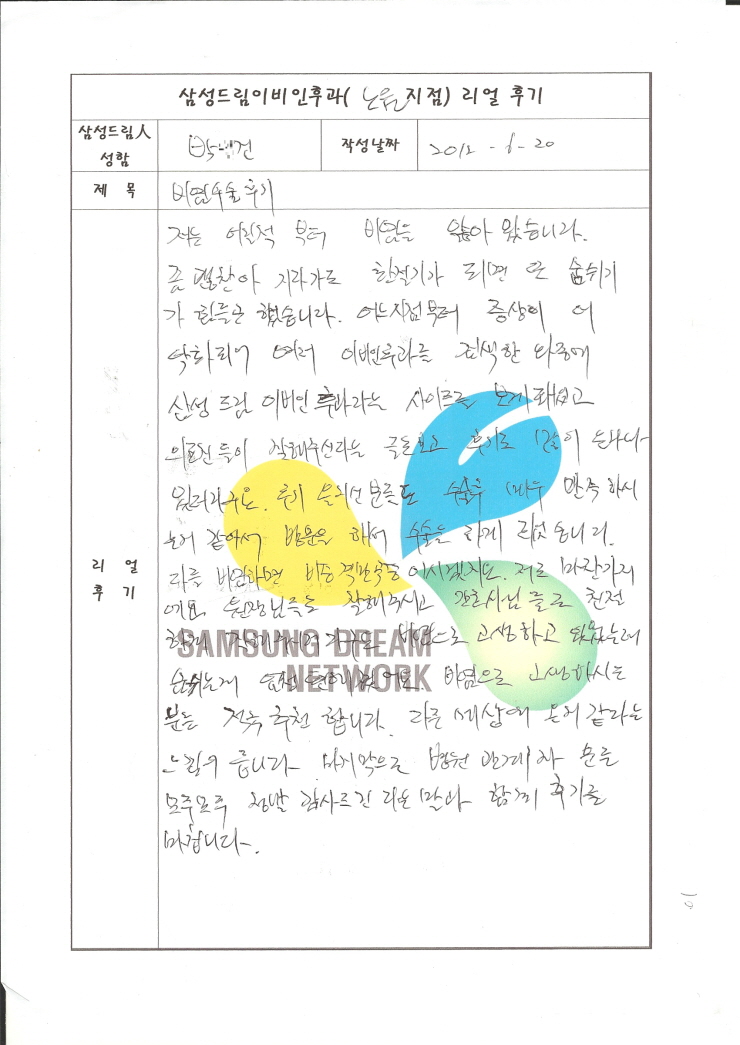 삼성드림이비인후과( 노원 지점) 리얼 후기
삼성드림人 성함
박 건
작성날짜
2012 - 6 - 20
제 목
비염수술후기
리 얼 후 기
저는 어릴적 부터 비염을 앓아 왔습니다.
좀 괜찮아 지다가도 환절기가 되면 또 숨쉬기
가 힘들곤 했습니다. 어느지점부터 증상이 더
악화되어 여러 이비인후과를 검색한 와중에
삼성 드림 이비인 후과라는 사이트를 보게 됐었고
의료진들이 잘해주신라는 글을보고 후기도 많이
후기 올리신 분들도 수술후 매우 만족 하시
는거 같아서 방문을 해서 수술을 하게 됐었습니다.
다들 비염하면 비중격만곡증 이시겠지요. 저도 마찬가지
에요. 원장님들도 잘해주시고 간호사님 들도 친절
비염으로 고생하고 있었는데
숨쉬는게
SAMSUNG DREAM
NETWORK
비염으로 고생하시는
분들 적극 추천 합니다. 다른 세상에 온거 같다는
느낌이 듭니다 마지막으로 병원 관계자 분들
모두모두 정말 감사드린 다는 말과 함께 후기를
마칩니다.